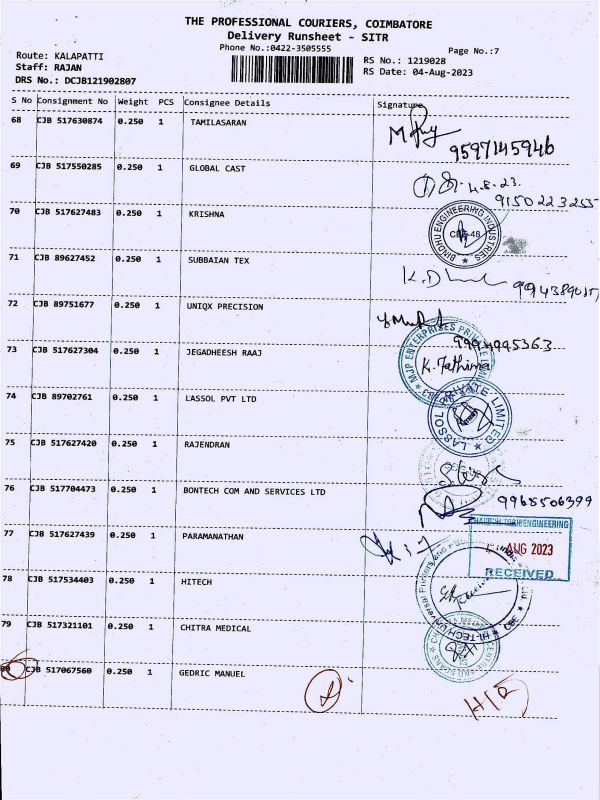 THE PROFESSIONAL COURIERS, COIMBATORE
Delivery Runsheet - SITR
Phone No.:0422-3505555
Page No.:7
Route: KALAPATTI
RS No.: 1219028
Staff: RAJAN
RS Date: 04-Aug-2023
DRS No.: DCJB121902807
S No Consignment No Weight PCS Consignee Details Signature
68 CJB 517630874 0.250 1 TAMILASARAN
9597145946
69 CJB 517550285 0.250 1 GLOBAL CAST
4.8.23.
9150223255
70 CJB 517627483 0.250 1 KRISHNA
BINDHU ENGINEERING INDUSTRIES
71 CJB 89627452 0.250 1 SUBBAIAN TEX
72 CJB 89751677 0.250 1 UNIQX PRECISION
MJP ENTERPRISES PRIVATE
73 CJB 517627304 0.250 1 JEGADHEESH RAAJ
K. Fathima
74 CJB 89702761 0.250 1 LASSOL PVT LTD
LASSOL PRIVATE LIMITED
75 CJB 517627420 0.250 1 RAJENDRAN
76 CJB 517704473 0.250 1 BONTECH COM AND SERVICES LTD
9968506399
77 CJB 517627439 0.250 1 PARAMANATHAN
ENGINEERING
AUG 2023
RECEIVED
78 CJB 517534403 0.250 1 HITECH
HI-TECH
CBE
79 CJB 517321101 0.250 1 CHITRA MEDICAL
80 CJB 517067560 0.250 1 GEDRIC MANUEL